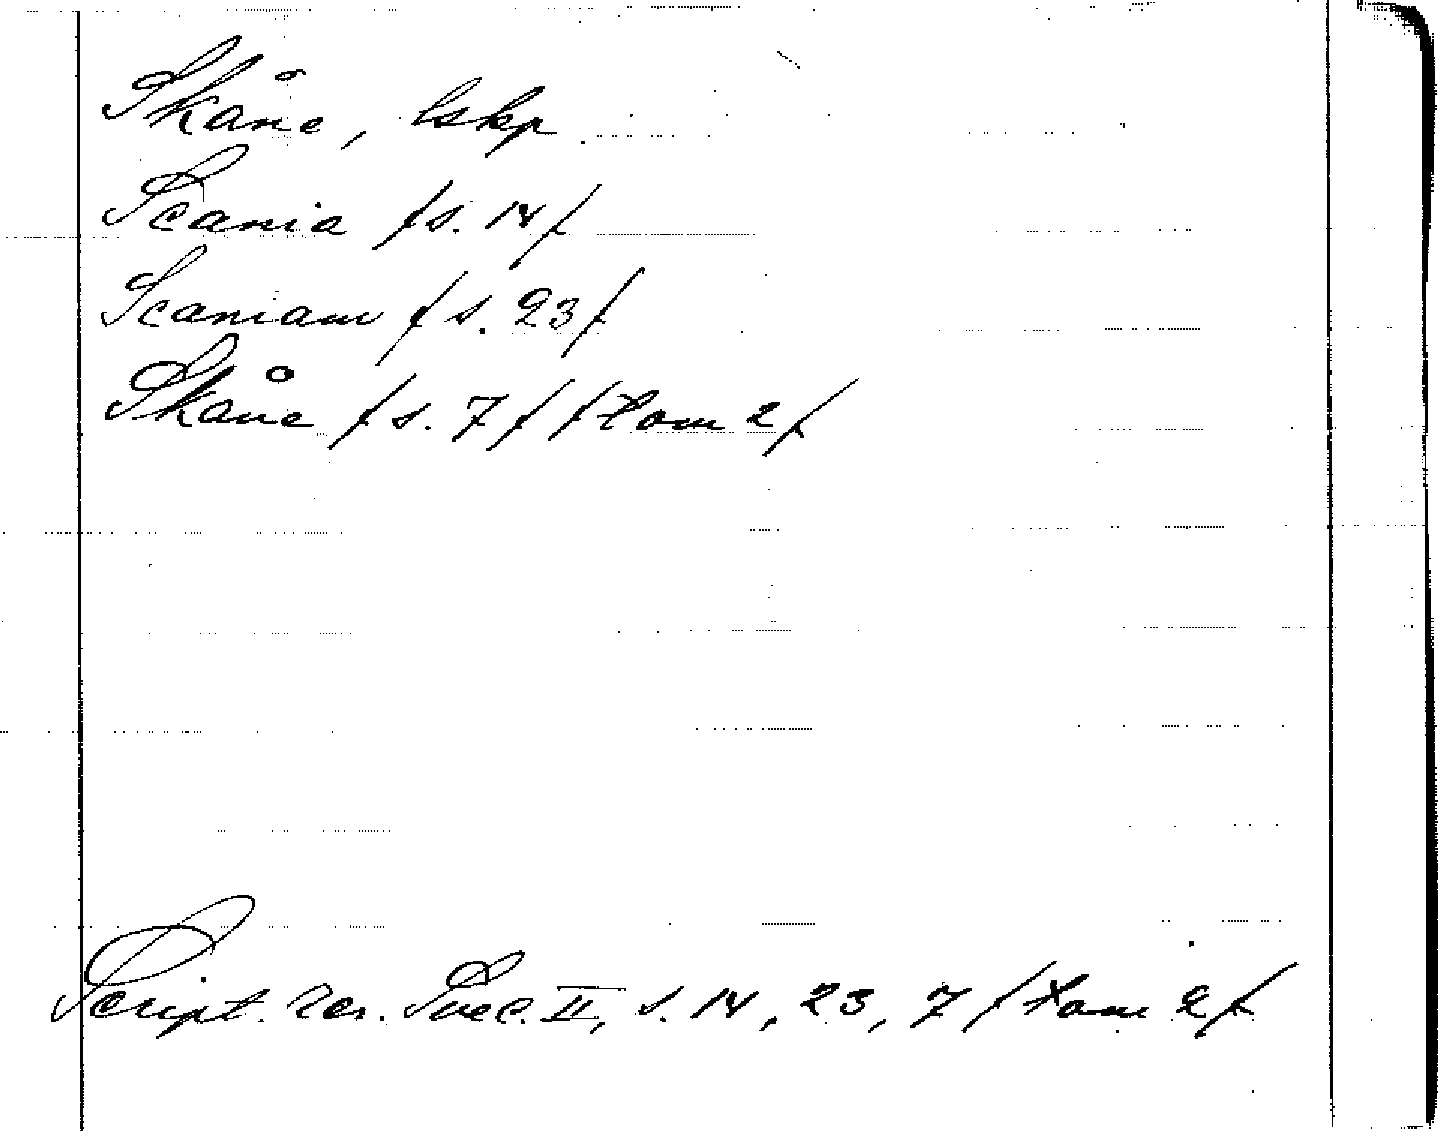 Skåne, lskp
Scania / s. 14 /
Scaniam / s. 23 /
Skåne / s. 7 / / tom 2 /
Script. rer. Suec. II, s. 14, 23, 7 / tom 2 /